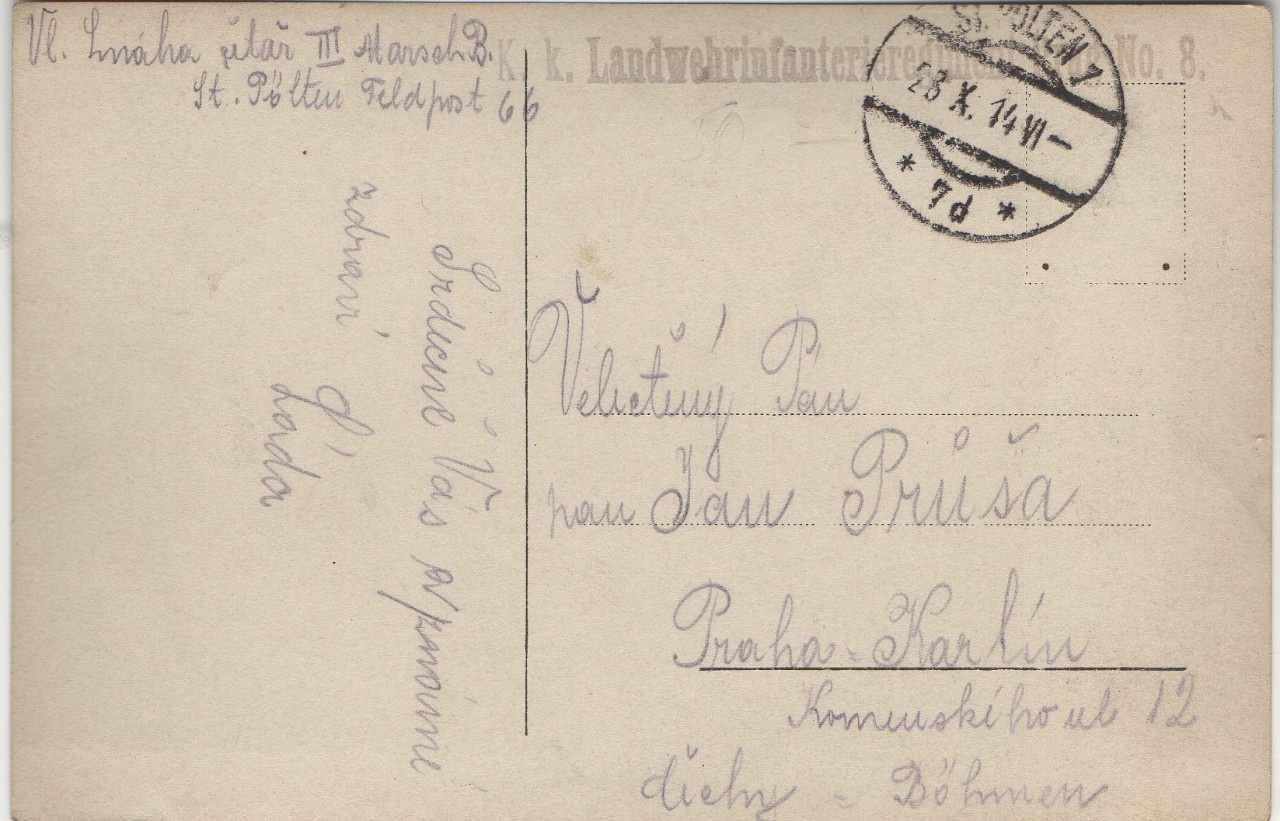 Vl. Snáha četař III Marsch B.
St. Pölten Feldpost 66
K. k. Landwehrinfanterieregiment No. 8.
ST. PÖLTEN 1
28 X. 14 VI–
* 7d *
Srdečně Vás
zdraví
Láda
Velectěný Pán
pan Jan Průša
Praha - Karlín
Komenského ul 12
Čechy - Böhmen